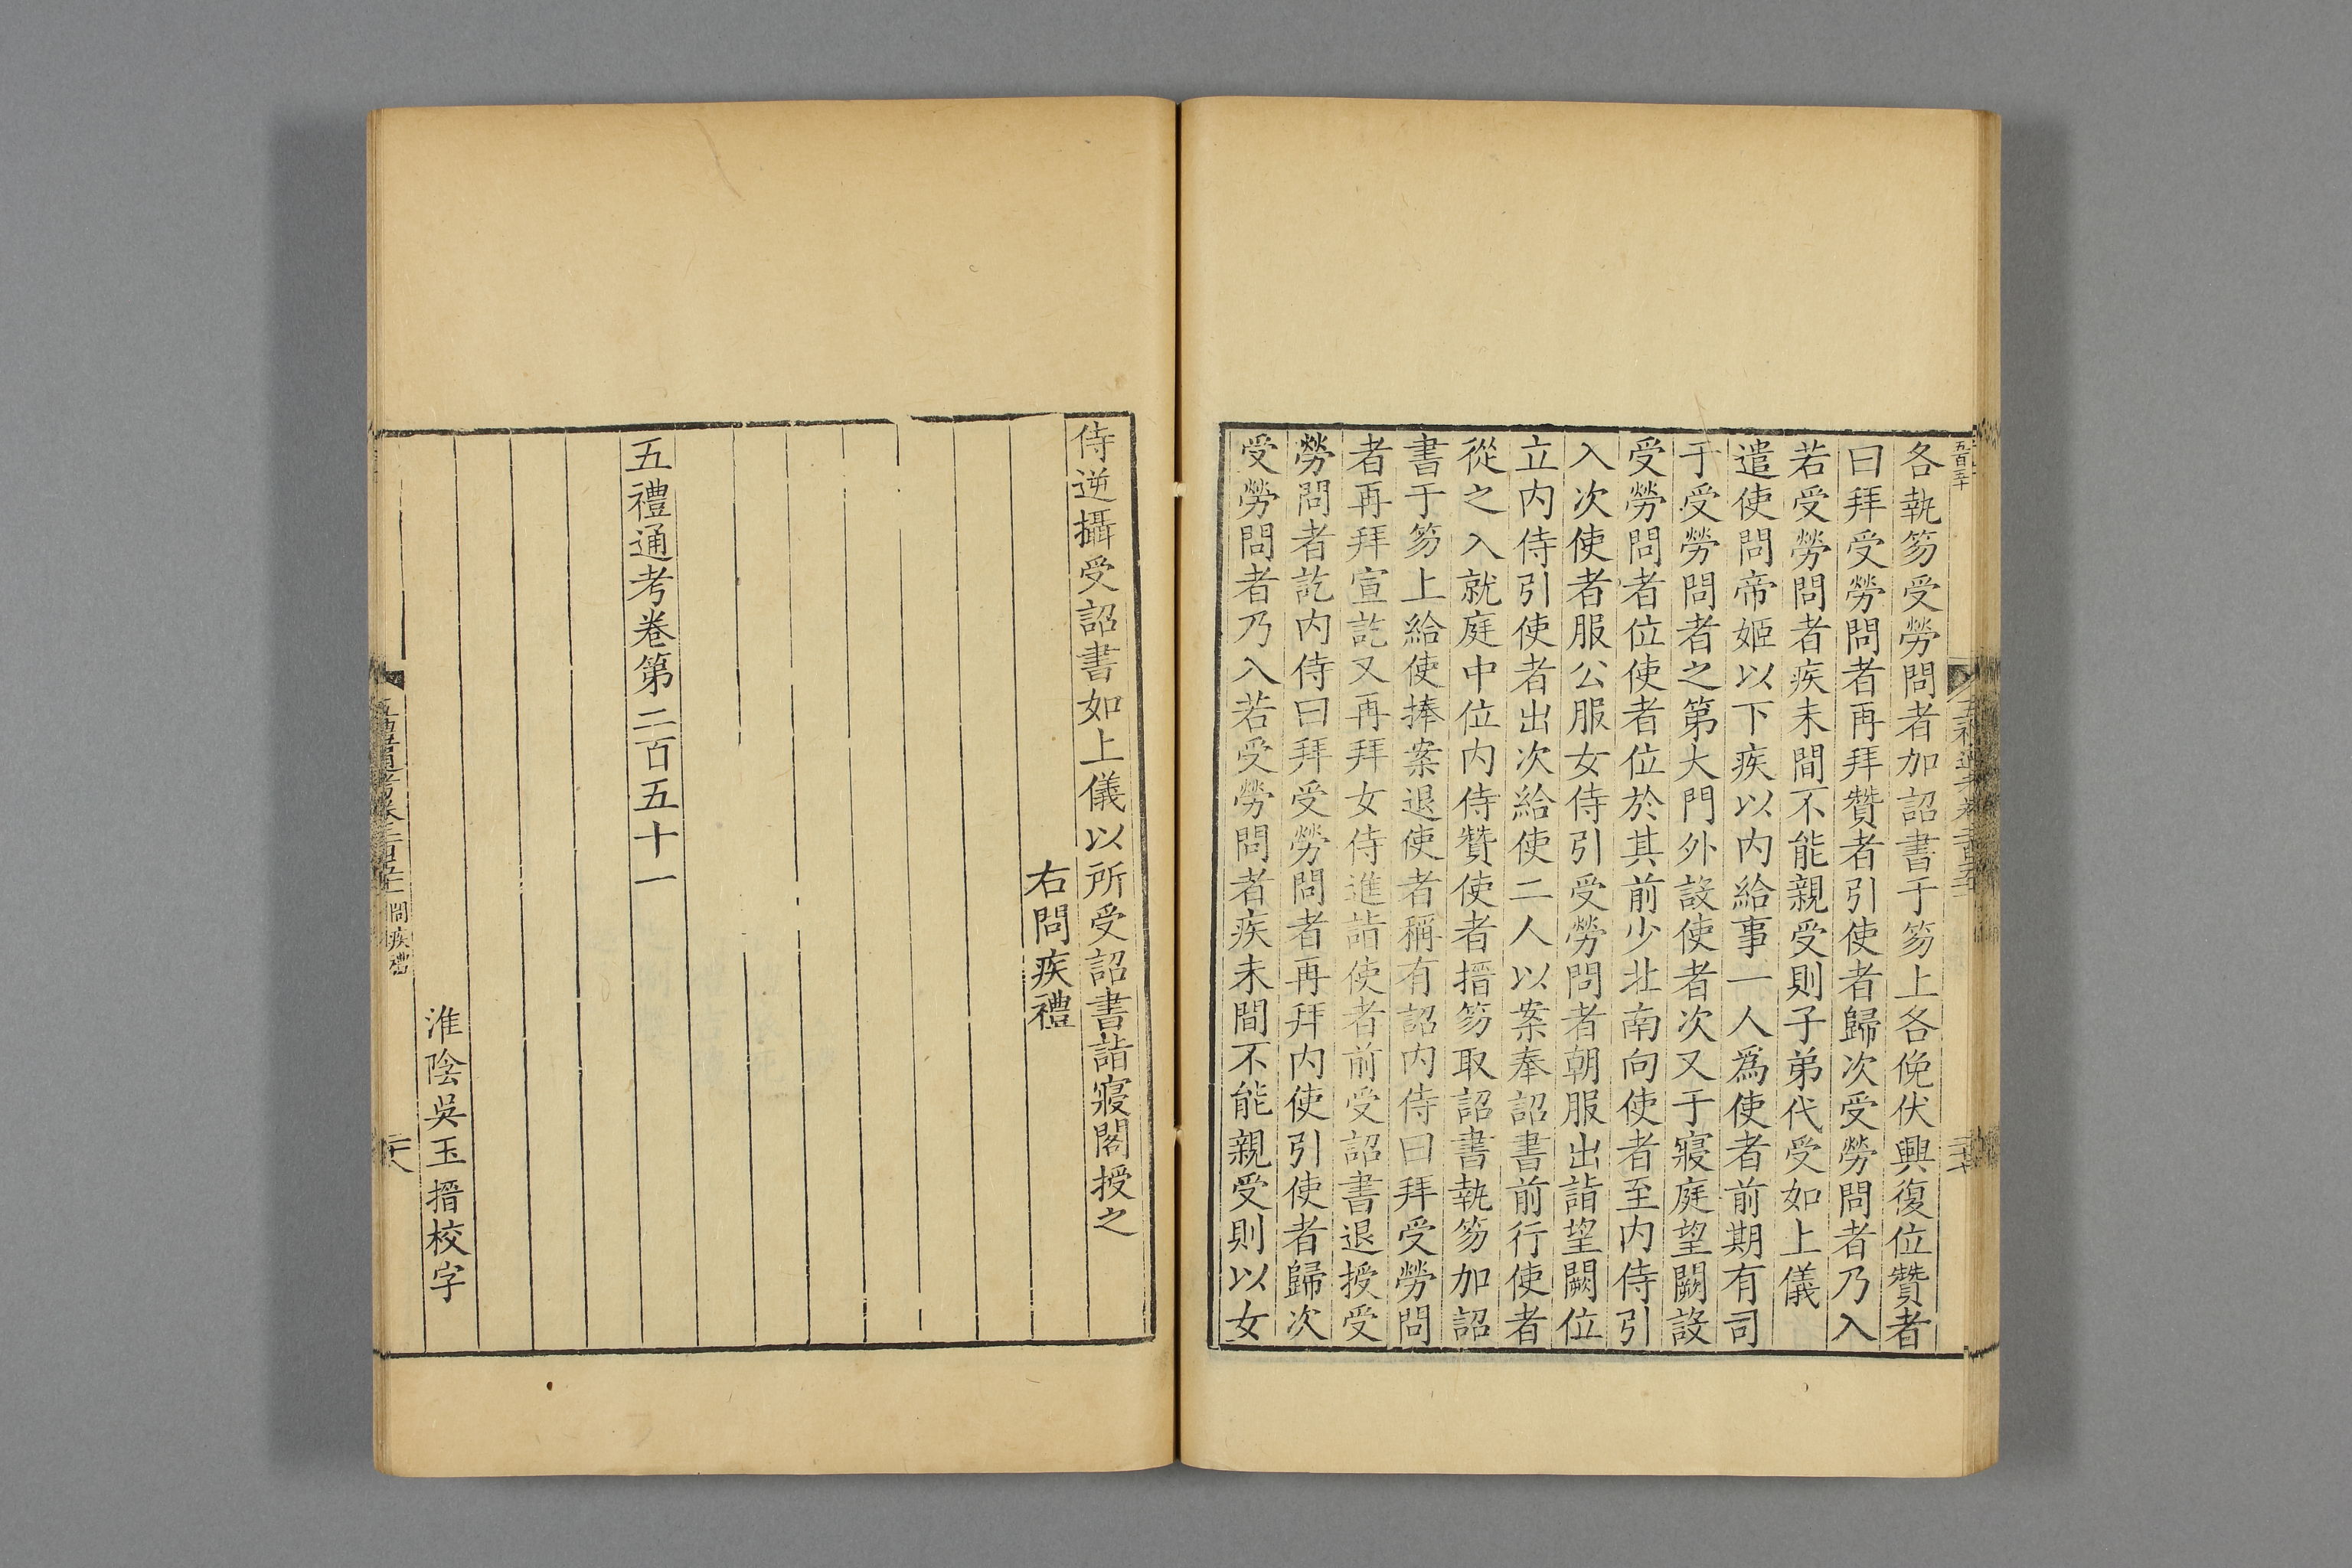 各執笏受勞問者加詔書于笏上各俛伏興復位贊者
曰拜受勞問者再拜贊者引使者歸次受勞問者乃入
若受勞問者疾未間不能親受則子弟代受如上儀
遣使問帝姬以下疾以内給事一人爲使者前期有司
于受勞問者之第大門外設使者次又于寢庭望闕設
受勞問者位使者位於其前少北南向使者至内侍引
入次使者服公服女侍引受勞問者朝服出詣望闕位
立内侍引使者出次給使二人以案奉詔書前行使者
從之入就庭中位内侍贊使者搢笏取詔書執笏加詔
書于笏上給使捧案退使者稱有詔内侍曰拜受勞問
者再拜宣訖又再拜女侍進詣使者前受詔書退授受
勞問者訖内侍曰拜受勞問者再拜内使引使者歸次
受勞問者乃入若受勞問者疾未間不能親受則以女
侍逆攝受詔書如上儀以所受詔書詣寢閣授之
右問疾禮
五禮通考卷第二百五十一
淮陰吳玉搢校字
五禮通考卷二百五十一 問疾禮 二十八